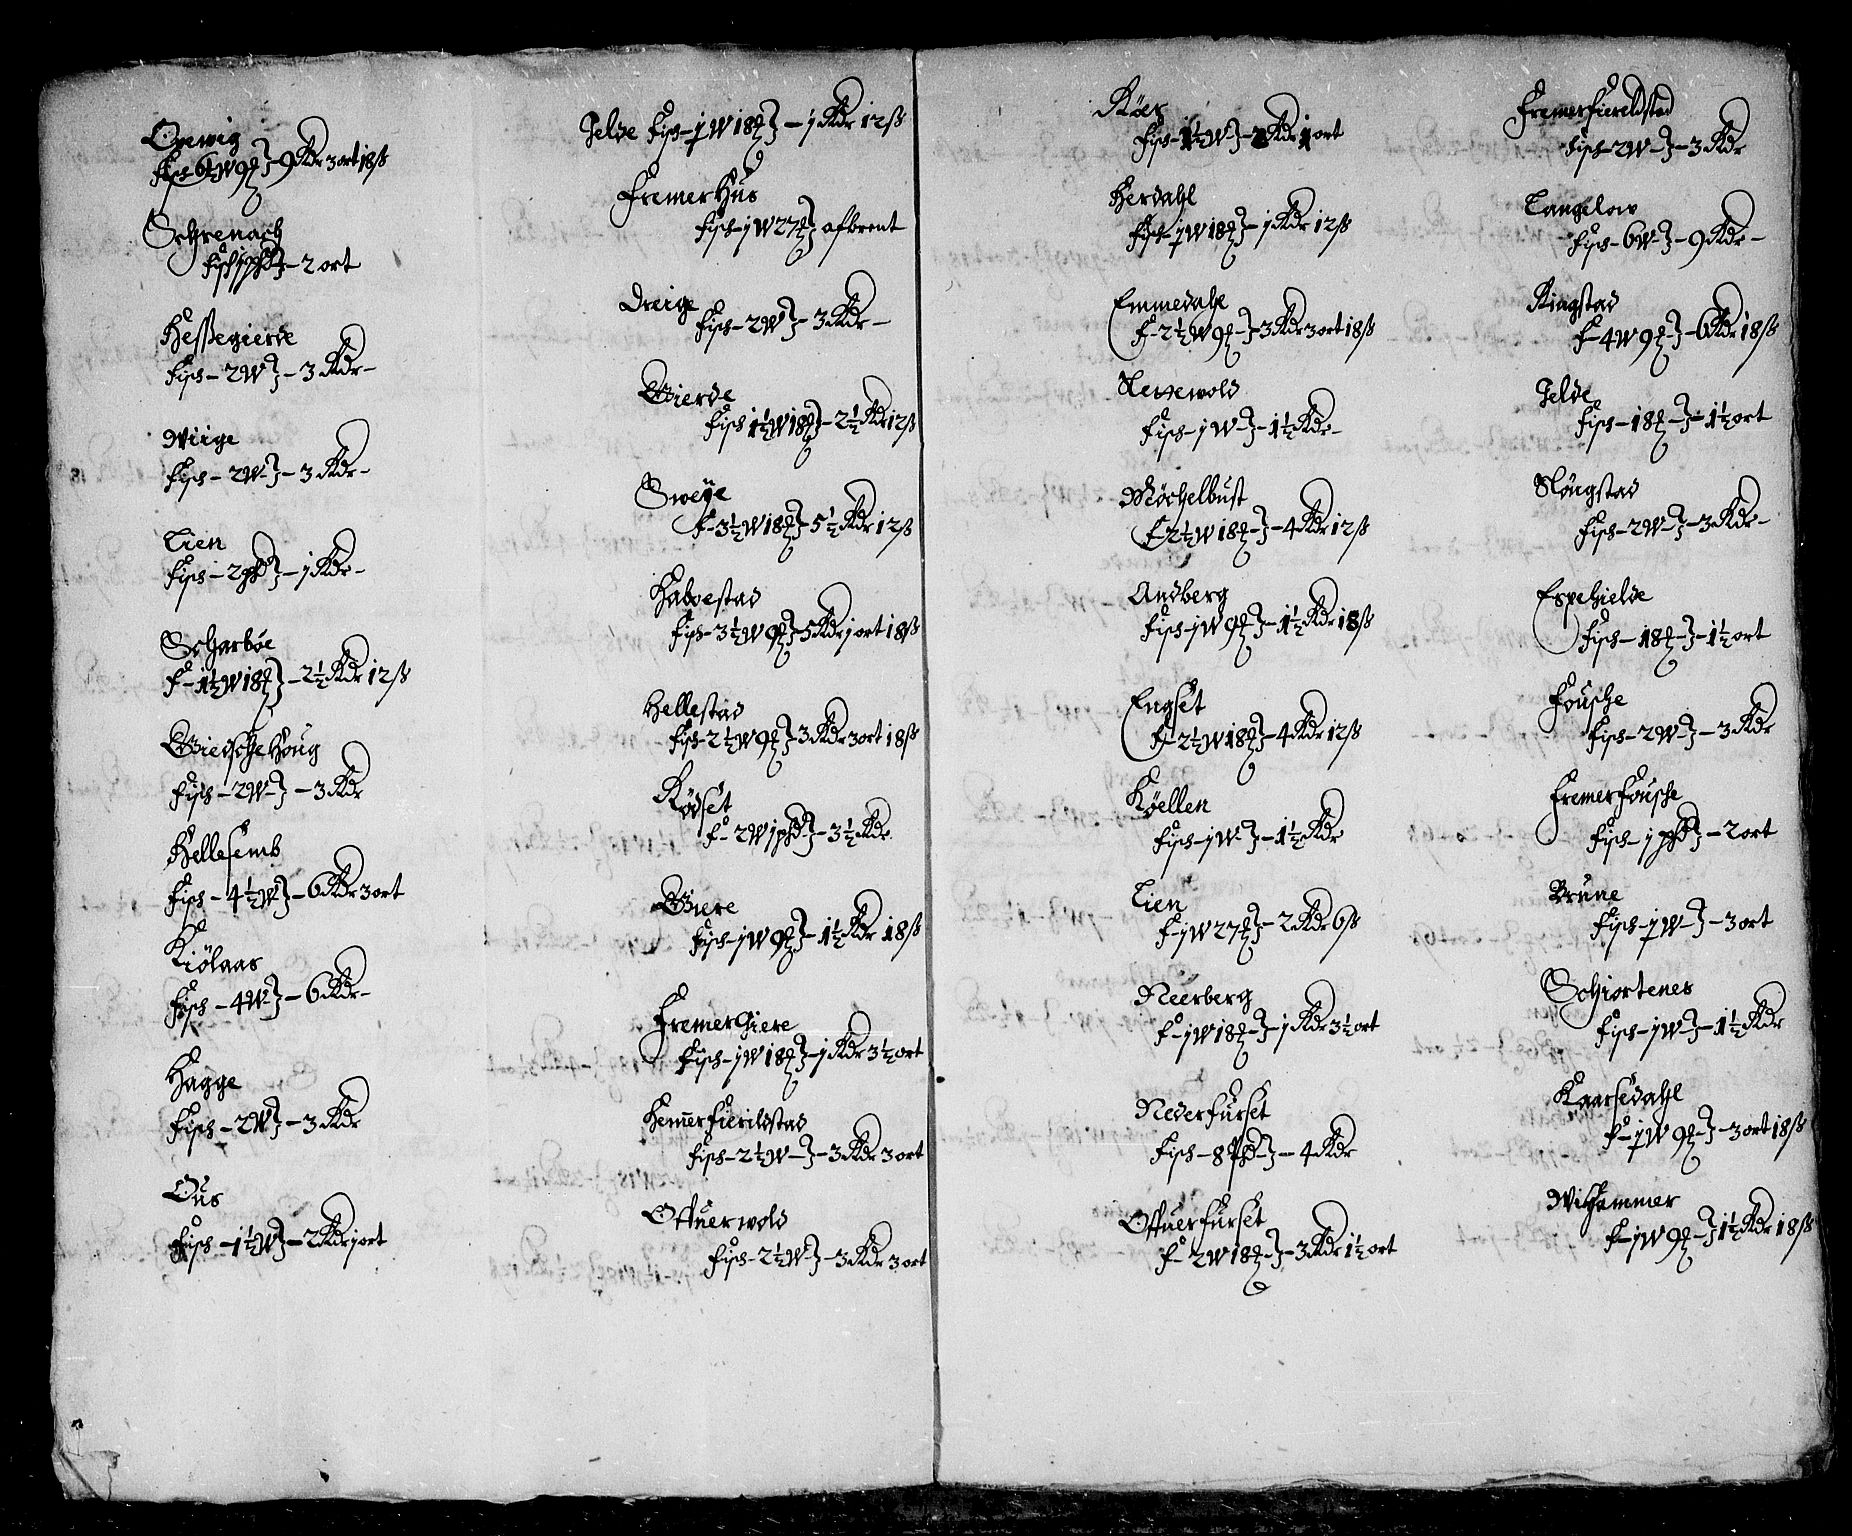 Örewig
Fisch-6½W 9₰}-9 Rdr 3 ort 18 ß
Schrenach
Fisch 1 phd}-2 ort
Heßegierde
Fisch-2W}-3 Rdr-
Wiige
Fisch-2W-}-3 Rdr-
Lien
Fisch-2 phd}-j Rdr-
Scharböe
F-1½W 18₰}-2½ Rdr 12 ß
Gierschehoug
Fisch-2W-}-3 Rdr
Hellesemb
Fisch-4½W}-6 Rdr 3 ort
Kiölaas
Fisch-4W-}-6 Rdr-
Hagge
Fisch-2W}-3 Rdr
Ous
Fisch-1½W}-2 Rdr j ort
Jelde Fisch-jW 18₰}-j Rdr 12 ß
Fremer Hus
Fisch-jW 27₰} afbrent
Dreige
Fisch-2W}-3 Rdr-
Gierde
Fisch 1½W 18₰}-2½ Rdr 12 ß
Sweÿe
F-3½W 18₰}-5½ Rdr 12 ß
Haboestad
Fisch-3½W 9₰}-5 Rdr j ort 18 ß
Hellestad
Fisch-2½W 9₰}-3 Rdr 3 ort 18 ß
Rödset
F-2W j phd}-3½ Rdr
Giere
Fisch-jW 9₰}-1½ Rdr 18 ß
Fremer Giere
Fisch-jW 18₰}-j Rdr 3½ ort
Hemer fierildstad
Fisch-2½W-}-3 Rdr 3 ort
Offuerwold
Fisch-2½W-}-3 Rdr 3 ort
Röer
Fisch-1½W}-2 Rdr 1 ort
Herdahl
Fisch-jW 18₰}-j Rdr 12 ß
Emmedahl
F-2½W 9₰-}-3 Rdr 3 ort 18 ß
Nessewold
Fisch-jW-}-1½ Rdr-
Möchelbust
F-2½W 18₰-}-4 Rdr 12 ß
Andberg
Fisch-jW 9₰}-1½ Rdr 18 ß
Engset
F-2½W 18₰}-4 Rdr 12 ß
Köellen
Fisch-jW-}-1½ Rdr
Lien
F-jW 27₰}-2 Rdr 6 ß
Neerberg
F-jW 18₰-}-j Rdr 3½ ort
Nederfurset
Fisch-8 Phd-}-4 Rdr
Offuerfurset
F-2W 18₰-}-3 Rdr 1½ ort
Fremerfierildstad
Fisch-2W-}-3 Rdr
Langelow
Fisch-6W-}-9 Rdr-
Ringstad
F-4W 9₰-}-6 Rdr 18 ß
Jelde
Fisch-18₰-}-1½ ort
Slöngstad
Fisch-2W-}-3 Rdr-
Espehielde
Fisch-18₰-}-1½ ort
Fousche
Fisch-2W-}-3 Rdr
Fremer fousche
Fisch-j phd}-2 ort
Brune
Fisch-jW-}-3 ort
Schiortenes
Fisch-jW-}-1½ Rdr
Kaarsedahl
F-jW 9₰-}-3 ort 18 ß
Wishammer
F-jW 9₰-}1½ Rdr 18 ß